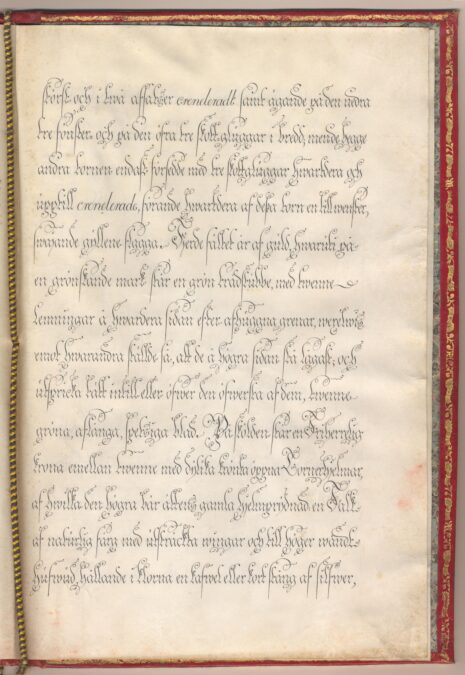 störst och i twå affatzer creneleradt samt ägande på den nedra
tre fönster och på den öfra tre skottgluggar i bredd, mende begge
andra tornen endast försedde med tre skottgluggar hwartdera och
upptill crenelerade, förande hwartdera af dessa torn en till wenster,
swäfande gyllene flagga. Fjerde fältet är af guld, hwaruti på
en grönskande mark står en grön trädstubbe, med twenne
lemningar å hwardera sidan efter afhuggna grenar, wexelwis
emot hwarandra ställde så, att de å högra sidan stå lägst, och
utspricka tätt intill eller öfwer den öfwersta af dem, twenne
gröna, aflånga, spetsiga blad. På skölden står en Friherrelig
krona emellan twenne med dylika krönta öppna Tornerhjelmar,
af hwilka den högra bär ättens gamla hjelmprydnad en Falk
af naturlig färg med utsträckta wingar och till höger wändt
hufwud, hållande i klorna en kafwel eller kort stång af silfwer,